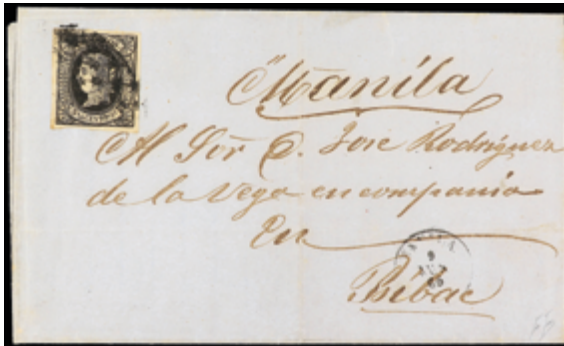 Manila
Al Sor D. Jose Rodriguez
de la Vega en compania
En
Bibac